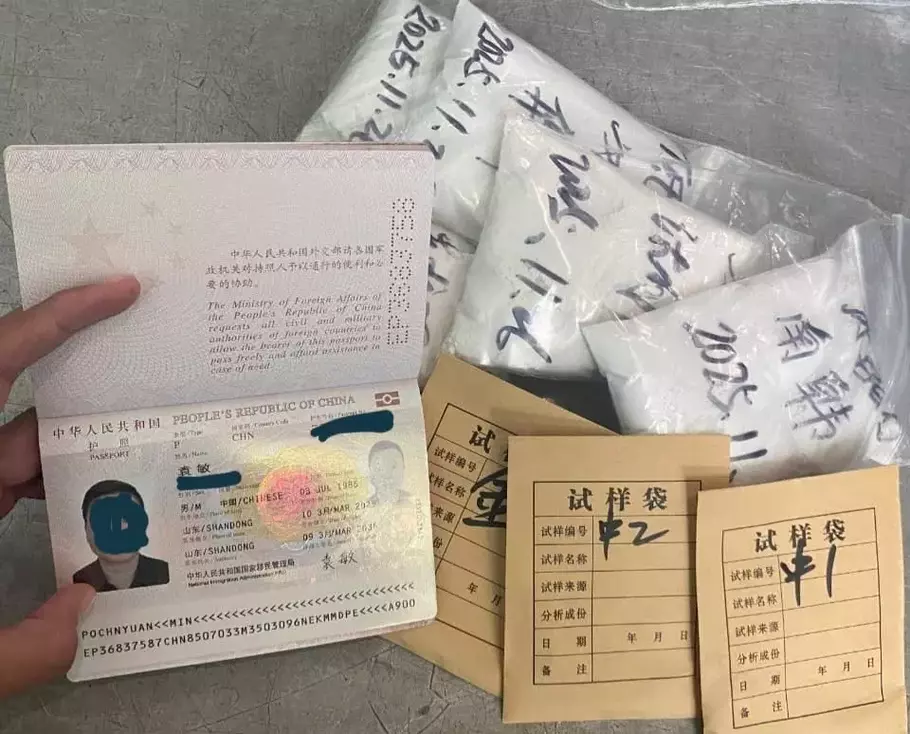 2025.11.
2025.11.
2025.11.26
南韩
2025.11.
中华人民共和国外交部请各国军
政机关对持照人予以通行的便利和必
要的协助。
The Ministry of Foreign Affairs of
the People's Republic of China
requests all civil and military
authorities of foreign countries to
allow the bearer of this passport to
pass freely and afford assistance in
case of need.
中华人民共和国 PEOPLE'S REPUBLIC OF CHINA
护照
PASSPORT
P CHN
袁敏
男/M 中国/CHINESE 03 JUL 1985
山东/SHANDONG 10 3月/MAR 2025
山东/SHANDONG 09 3月/MAR 2035
中华人民共和国国家移民管理局
National Immigration Administration, PRC
袁敏
POCHNYUAN<<MIN<<<<<<<<<<<<<<<<<<<<<<<<<<<<<<
EP36837587CHN8507033M3503096NEKMMDPE<<<<A900
试样
试样编号
试样名称
来源
成份
年 月
试样袋
试样编号 #2
试样名称
试样来源
分析成份
日期 年 月 日
备注
试样袋
试样编号 #1
试样名称
试样来源
分析成份
日期 年 月 日
备注